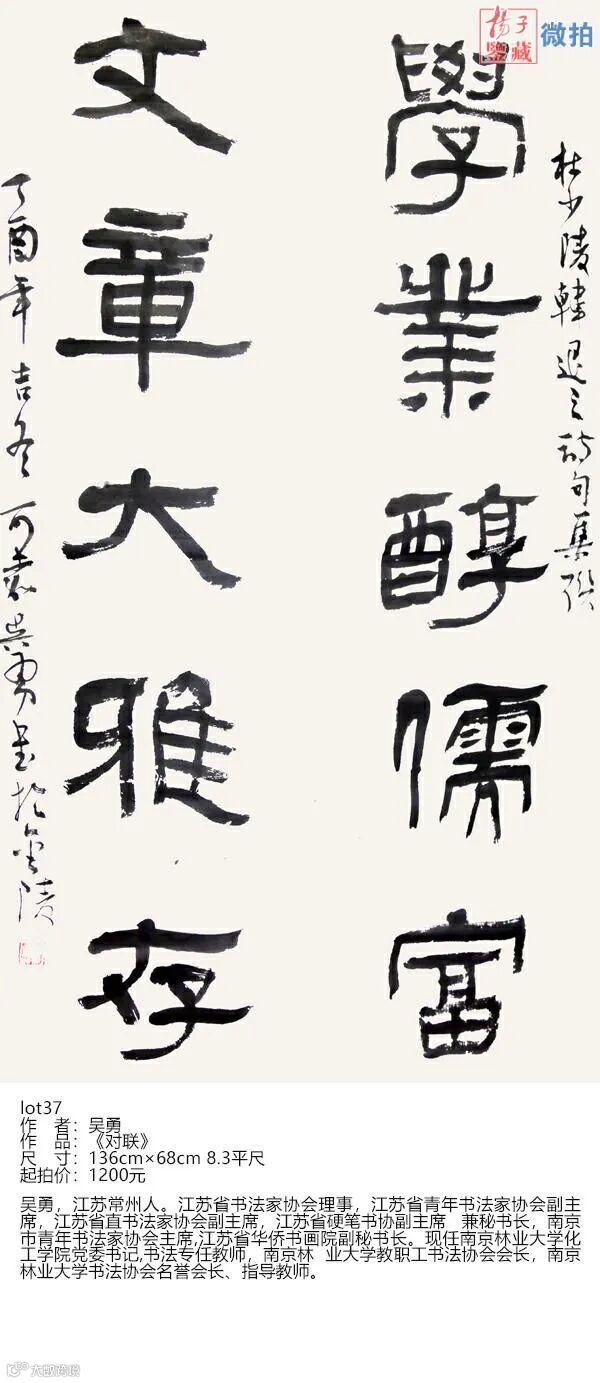 揚子
鑒藏
微拍
杜少陵韓退之詩句集聯
學業醇儒富
文章大雅存
丁酉年吉冬可表吴勇书於金陵
lot37
作 者：吴勇
作 品：《对联》
尺 寸：136cm×68cm 8.3平尺
起拍价：1200元
吴勇，江苏常州人。江苏省书法家协会理事，江苏省青年书法家协会副主
席，江苏省直书法家协会副主席，江苏省硬笔书协副主席 兼秘书长，南京
市青年书法家协会主席,江苏省华侨书画院副秘书长。现任南京林业大学化
工学院党委书记,书法专任教师，南京林 业大学教职工书法协会会长，南京
林业大学书法协会名誉会长、指导教师。
大数跨境